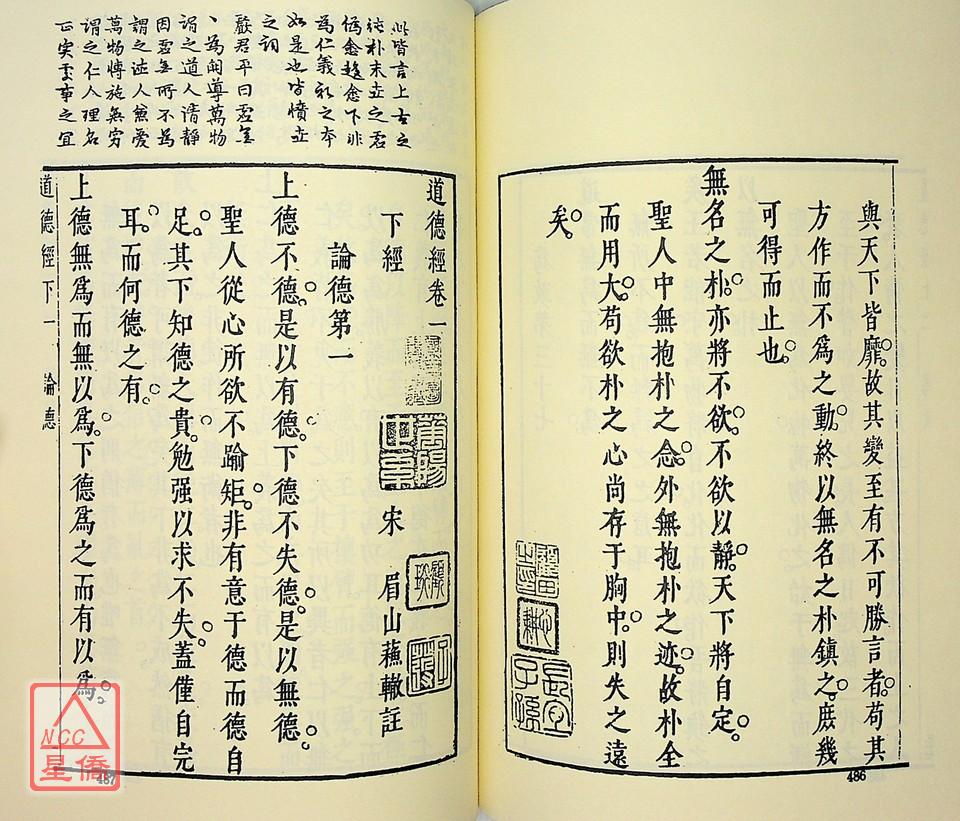 與天下皆靡。故其變至有不可勝言者。苟其
方作而不爲之動。終以無名之朴鎮之。庶幾
可得而止也。
無名之朴。亦將不欲。不欲以靜。天下將自定。
聖人中無抱朴之念。外無抱朴之迹。故朴全
而用大。苟欲朴之心尚存于胸中。則失之遠
矣。
486
此皆言上古之
純朴末世之君
僞愈趍愈下非
爲仁義礼之本
如是也皆憤世
之詞
嚴君平曰虛無
爲開導萬物
謂之道人清靜
因應無所不爲
謂之德人兼愛
萬物博施無窮
謂之仁人理名
正實處事之宜
道德經卷一
下經
宋 眉山蘓轍註
論德第一
上德不德。是以有德。下德不失德。是以無德。
聖人從心所欲不踰矩。非有意于德而德自
足。其下知德之貴。勉强以求不失。蓋僅自完
耳。而何德之有。
上德無爲而無以爲。下德爲之而有以爲。
道德經下 一 論德
487
NCC
星僑